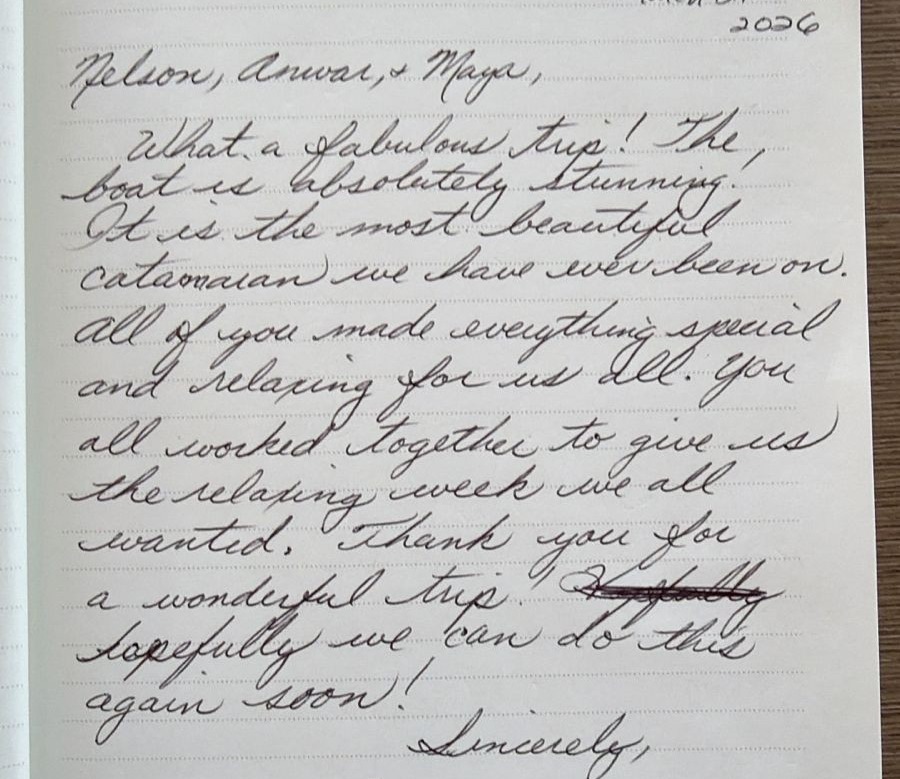 2026
Nelson, Anwar, + Maya,
What a fabulous trip! The
boat is absolutely stunning!
It is the most beautiful
catamaran we have ever been on.
All of you made everything special
and relaxing for us all. You
all worked together to give us
the relaxing week we all
wanted. Thank you for
a wonderful trip!
hopefully we can do this
again soon!
Sincerely,